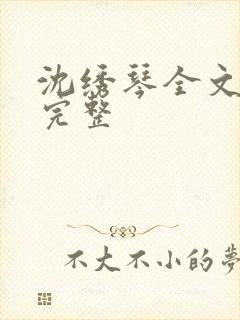 沈绣琴全文
完整
不大不小的夢